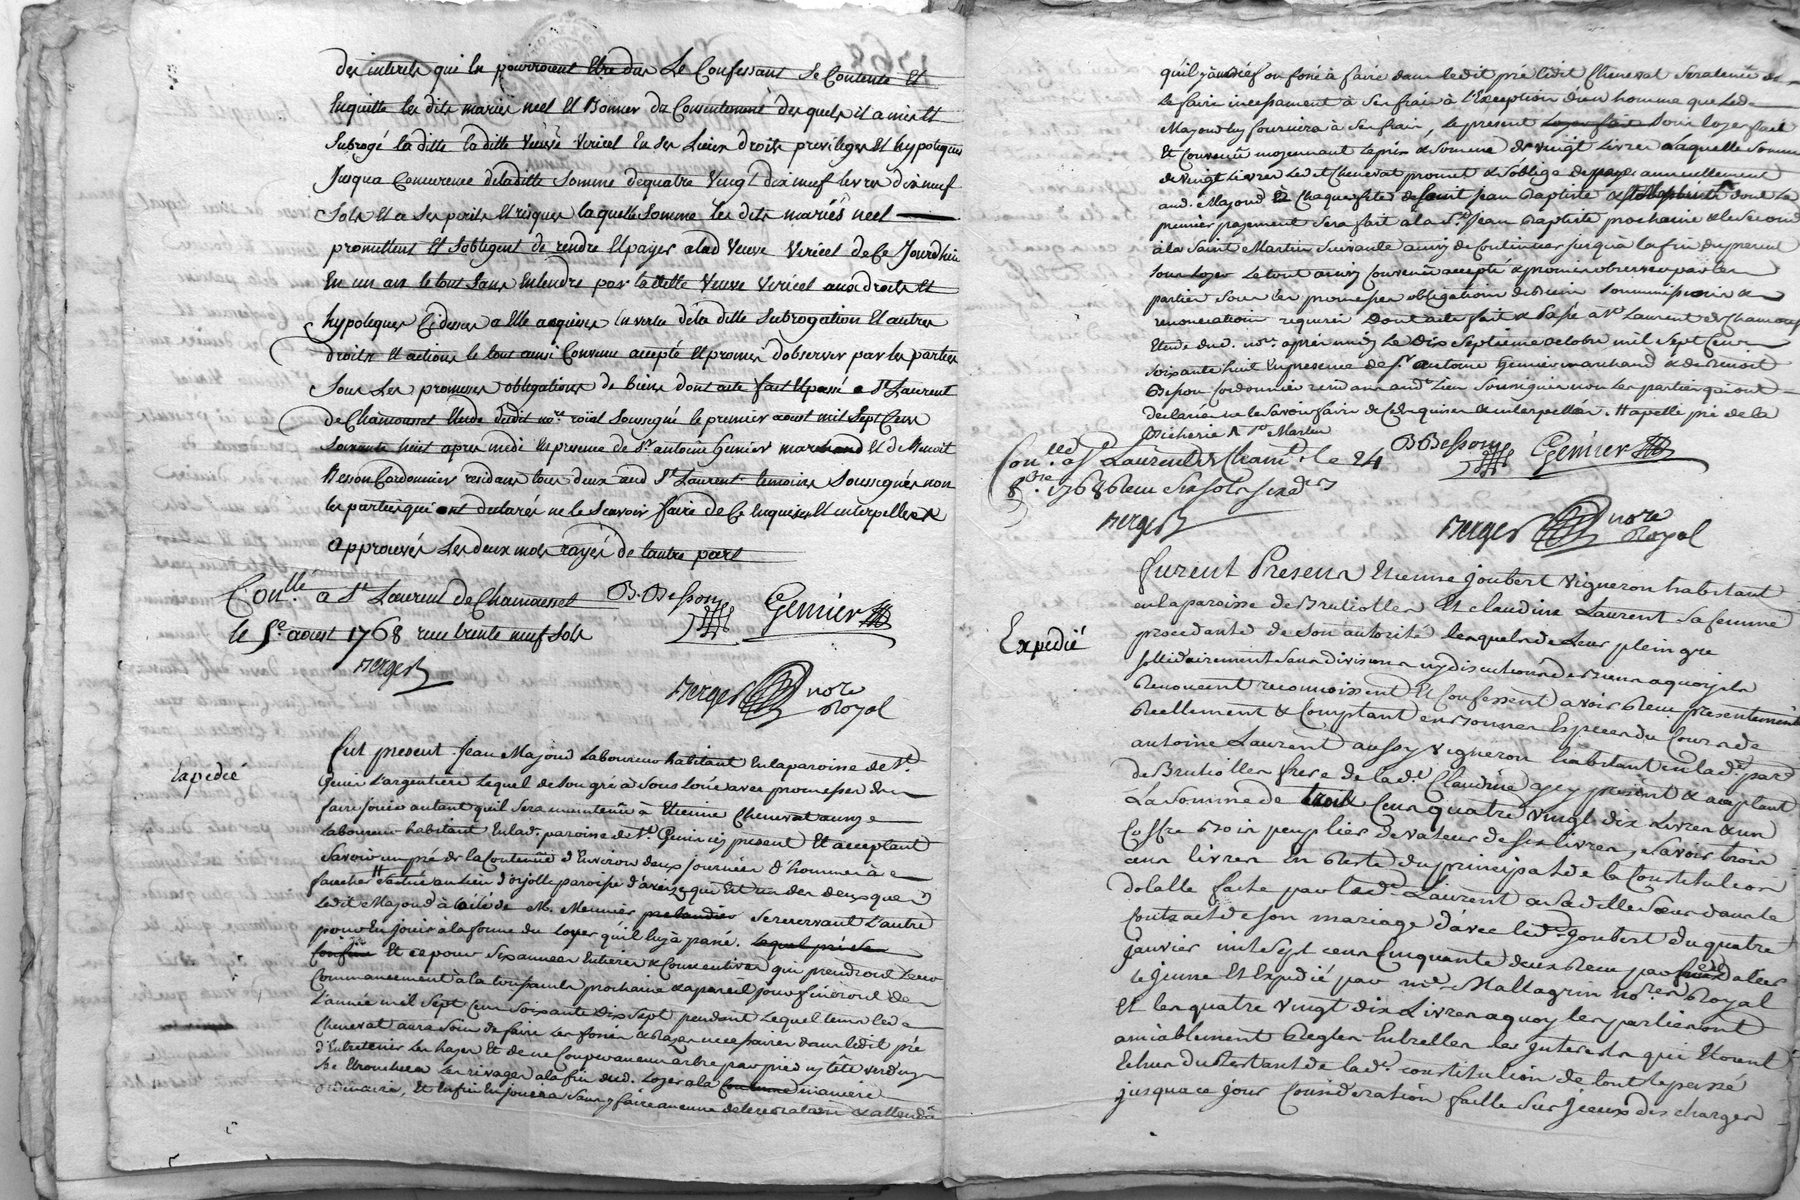 des interets qui en pourroient Etre dus Le Confessant Se Contente Et
Enquitte les dits mariés neel Et Bonnes du Consentement desquels il a mis Et
Subrogé la ditte la ditte Veuve Vericel En Ses Lieux droits privileges Et hypoteques
Jusqua Concurence de laditte Somme de quatre Vingt dix neuf livres dix neuf
Sols Et a Ses perils Et risques laquelle Somme les dits mariés neel
promettent Et Sobligent de rendre Et payer a lad Veuve Vericel de Ce Jourdhuy
En un an le tout Sans Entendre par la ditte Veuve Vericel aux droits Et
hypoteques Cidessus a Elle acquises En vertu de la ditte Subrogation Et autres
droits Et actions le tout ainsi Convenu accepté Et promis d'observer par les parties
Sous Les promesses obligations de biens dont acte fait Et passé a St Laurent
de Chamousset Etude dudit nore roial Soussigné le premier aoust mil Sept Cens
Soixante huit apres midi En presence de Sr antoine Genier marchand Et de Benoit
Besson Cordonnier residans tous deux aud St Laurent temoins Soussignés non
les parties qui ont declarés ne le Scavoir faire de Ce Enquises Et interpellés
approuvés Les deux mots rayés de lautre part
Conlle a St Laurent de Chamousset B. Besson Genier
le 5e aoust 1768 receu trente neuf Sols
Berger
Berger nore
Royal
Expedié
Fut present Jean Majoud Laboureur habitant En la paroisse de St.
Genis L'argentiere Lequel de son gré a Sous Loüé avec promesses de
faire jouir autant quil Sera maintenû à Etienne Chenevat aussy
Laboureur habitant En lad. paroisse de St. Genis icy present Et acceptant
Savoir un pré de la Contenüe d'Environ deux journées d'hommes à
faucher Scitué au lieu d'orjolle paroisse d'aveize qui Est un des deux que
Ledit Majoud à de M. Meunier Se reservant L'autre
pour En jouir à la forme du Loyer qu'il luy à passé. Lequel pré Se
Confine Et ce pour Six années Entieres & Consecutives qui prendront Leur
Commancement à la toussaints prochaine & à pareil jour finiront de
L'année mil Sept Cent Soixante Dix Sept pendant Lequel tems led
Chenevat aura Soin de faire Les fossés & Razes necessaires dans ledit pré
d'Entretenir Les hayes Et de ne Couper aucun arbre par pied ny tête verd ny
Sec Les rivages a la fin dud. Loyer a la Coutume maniere
ordinaire, Et Enfin En jouira Sans y faire aucune deterioration & attendu
qu'il y a des fossés à faire dans ledit pré ledit Chenevat Sera tenû de
Le faire incessament à Ses frais à l'Exception d'un homme que led
Majoud luy fournira à Ses frais, Le present Loyer fait Sous Loyer fait
Et Convenû moyennant Le prix & Somme de vingt Livres Laquelle Somme
de vingt Livres Ledit Chenevat promet & s'oblige de payer annuellement
aud. Majoud Chaque fête de Saint Jean Baptiste dont Le
premier payement Sera fait à la St Jean Baptiste prochaine & le Second
à la Saint Martin Suivante ainsy de Continuer jusqu'à la fin du present
Sous Loyer Le tout ainsy Convenû accepté & promis observer par les
parties Sous les promesses obligation de Biens Soummissions &
renonciation requises Dont acte fait & Passé à St Laurent de Chamousset
Etude dud. nore. apres midy Le Dix Septieme octobre mil Sept Cens
Soixante huit En presence de Sr. antoine Genier marchand & de Benoit
Besson Cordonnier residants aud. Lieu Soussignés non Les parties qui ont
declarés ne le Savoir faire de Ce Enquises & interpellées. Happelle pré de la
Pecherie & St Martin
Conlled. a St Laurent de Cham. le 24 BBesson Genier
8bre 1768 Receu Six Sols Six d
Berger
Berger nore
Royal
Expedié
Furent Presens Etienne Joubert Vigneron habitant
en la paroisse de Brullioles Et Claudine Laurent Sa femme
procedante de Son autorité Lesquels de Leur plein gré
Sollidairement Sans division ny discution de Biens a quoy ils
Renoncent reconnoissent Et Confessent avoir Receu presentement
Reellement & Comptant en Bonnes Especes du Cours de
antoine Laurent aussy Vigneron habitant en lad. parsse
de Brullioles frere de lad. Claudine icy present & aceptant
La Somme de trois Cens quatre vingt dix Livres & un
Coffre Bois peuplier de valeur de Six livres, Savoir trois
cens livres En Reste du principal de la Constitution
dotalle faite par led. Laurent a lad. Sa Soeur dans le
Contract de Son mariage d'avec led. Joubert du quatre
Janvier mil Sept cens Cinquante deux Receu par
le Jeune Et Expedié par me. Mallagrin nore Royal
Et les quatre Vingt dix Livres a quoy les parties ont
amiablement Reglés Entrelles les Interets qui Etoient
Echus du Restant de la d. constitution de tout le passé
jusqua ce jour Consideration faitte Sur Iceux des charges